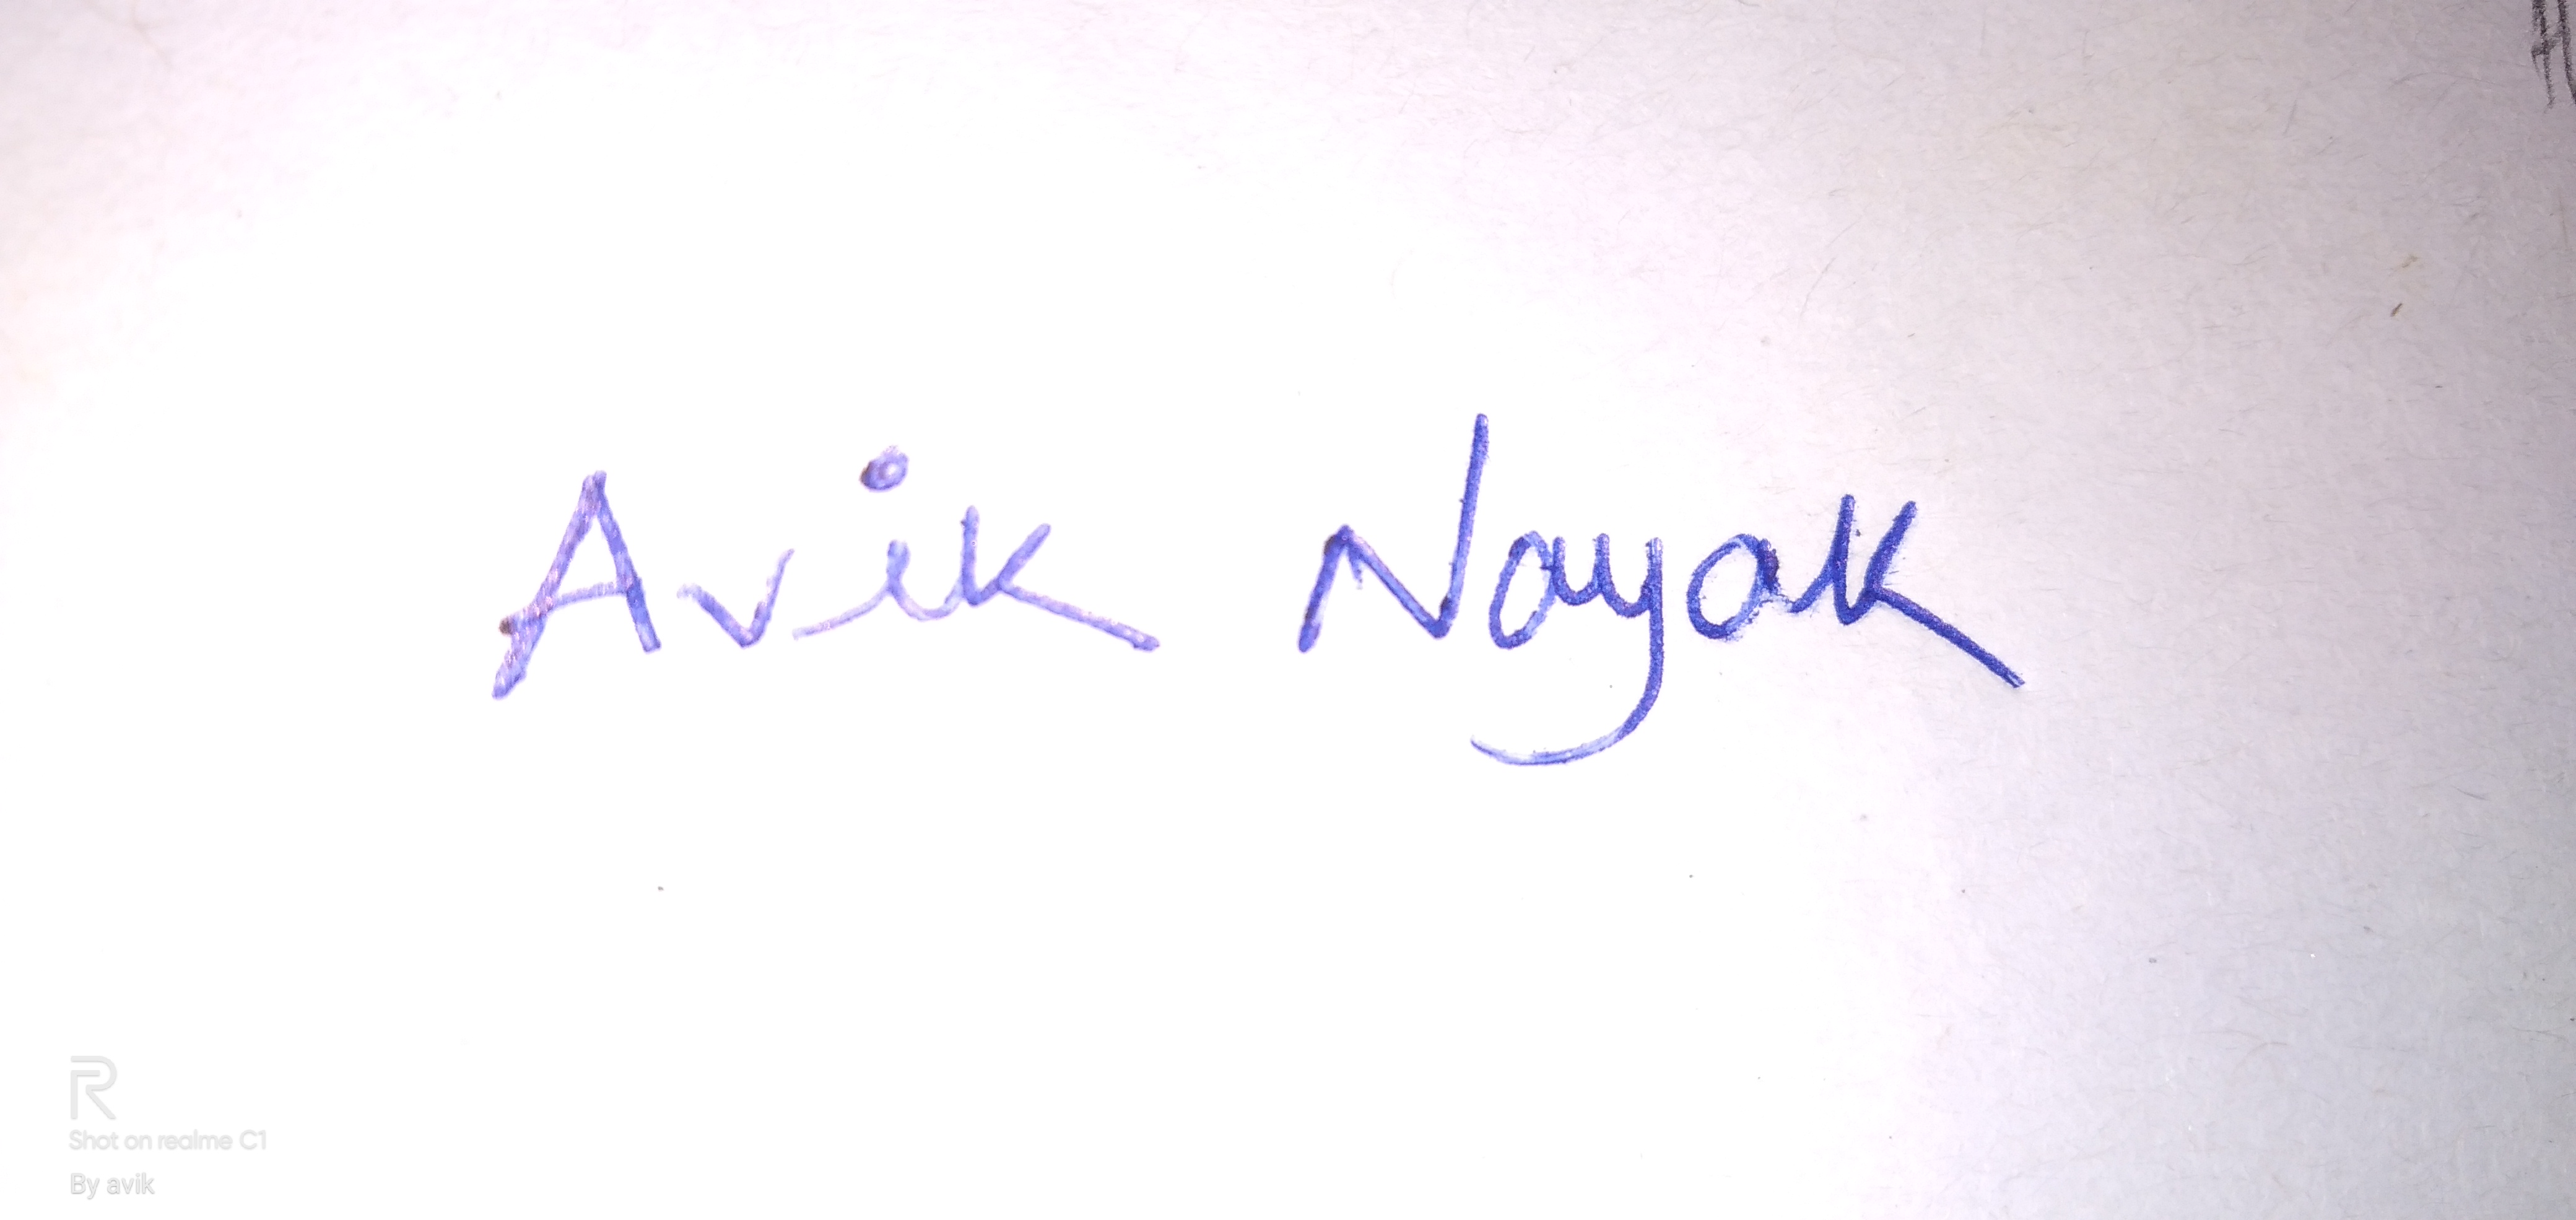 Avik Nayak
R
Shot on realme C1
By avik